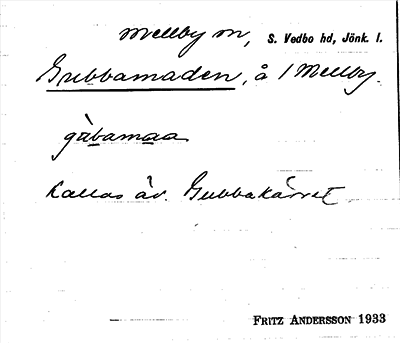 Mellby sn, S. Vedbo hd, Jönk. l.
Gubbamaden, å 1 Mellby.
gùbamaa
Kallas äv. Gubbakärret
FRITZ ANDERSSON 1933